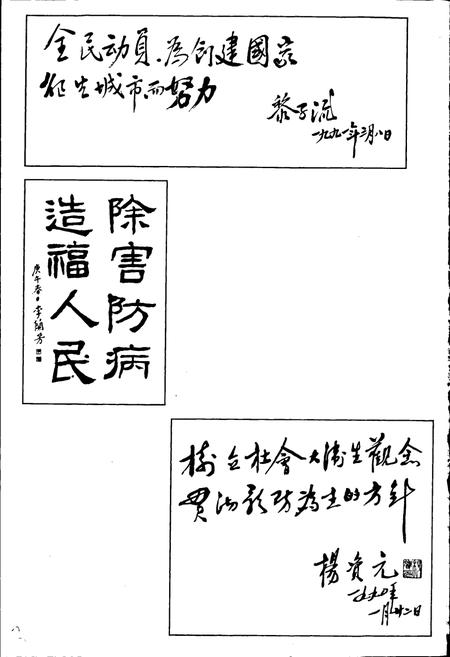 全民动員.為创建國家
卫生城市而努力
黎子流
一九九一年三月八日
除害防病
造福人民
庚午春日 李蘭芳
樹立社會大衛生觀念
贯彻預防為主的方針
楊資元
一九九〇年
一月廿二日